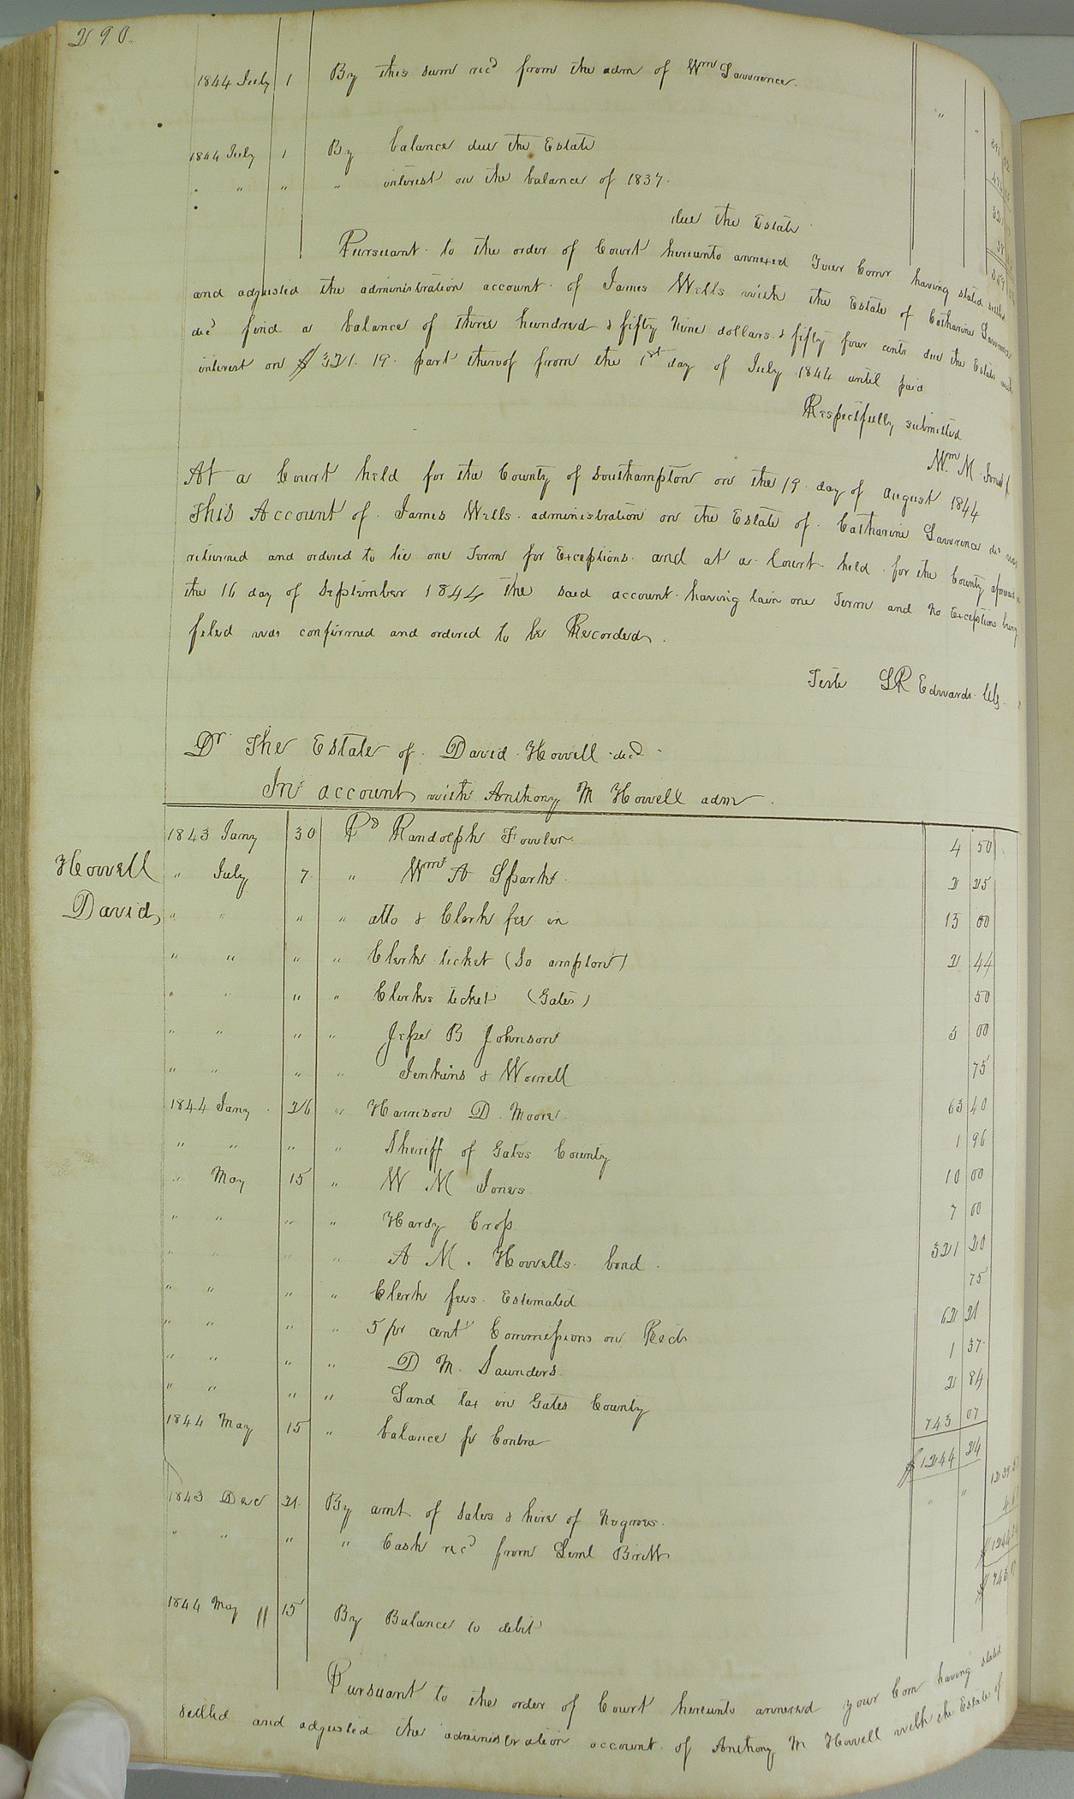 290.
1844 July 1 By this sum recd from the adm of Wm Lawrence
1844 July 1 By balance due the Estate
" " " " interest on the balance of 1837.
due the Estate
Pursuant to the order of Court hereunto annexed Your Comr having stated settled
and adjusted the administration account of James Wells with the Estate of Catharine Lawrence
decd find a balance of three hundred & fifty Nine dollars & fifty four cents due the Estate with
interest on $321.19 part thereof from the 1st day of July 1844 until paid
Respectfully submitted
Wm M. Jones
At a Court held for the County of Southampton on the 19 day of August 1844
This Account of James Wells administration on the Estate of Catharine Lawrence decd was
returned and ordered to lie one Term for Exceptions and at a Court held for the County aforesaid
the 16 day of September 1844 the said account having lain one Term and No Exceptions being
filed was confirmed and ordered to be Recorded.
Teste LR Edwards Clk
Dr The Estate of David Howell decd
In account with Anthony M Howell adm.
Howell
David
1843 Jany 30 Pd Randolph Fowler 4 50
" July 7 " Wm A Sparks 2 25
" " " " atto & Clerk fee in 13 00
" " " " Clerk ticket (So ampton) 2 44
" " " " Clerks ticket (Gates) 50
" " " " Jesse B Johnson 5 00
" " " " Jenkins & Worrell 75
1844 Jany 26 " Harrison D. Moore 63 40
" " " " Sheriff of Gates County 1 96
" May 15 " W M Jones 10 00
" " " " Hardy Cross 7 00
" " " " A M. Howells bond 321 20
" " " " Clerk fees Estimated 75
" " " " 5 pr cent Commissions on Recds 62 21
" " " " D M. Saunders 1 37
" " " " Land tax in Gates County 2 84
1844 May 15 " balance pr Contra 743 07
$1244 24
1843 Decr 21 By amt of Sales & hire of Negroes
" " " " Cash recd from Leml Britt
$1244
1844 May 15 By Balance to debit $743
Pursuant to the order of Court hereunto annexed your Com having stated
settled and adjusted the administration account of Anthony M Howell with the Estate of